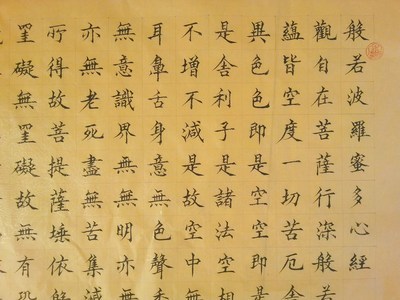 般若波羅蜜多心經
觀自在菩薩行深般若
蘊皆空度一切苦厄舍
異色色即是空空即是
是舍利子是諸法空相
不增不減是故空中無
耳鼻舌身意無色聲香
無意識界無無明亦無
亦無老死盡無苦集滅
所得故菩提薩埵依般
罣礙無罣礙故無有恐